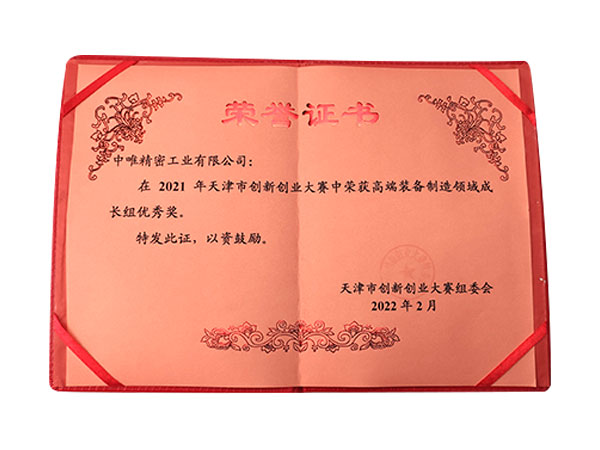 荣誉证书
中唯精密工业有限公司：
在 2021 年天津市创新创业大赛中荣获高端装备制造领域成
长组优秀奖。
特发此证，以资鼓励。
天津市创新创业大赛组委会
2022 年 2 月